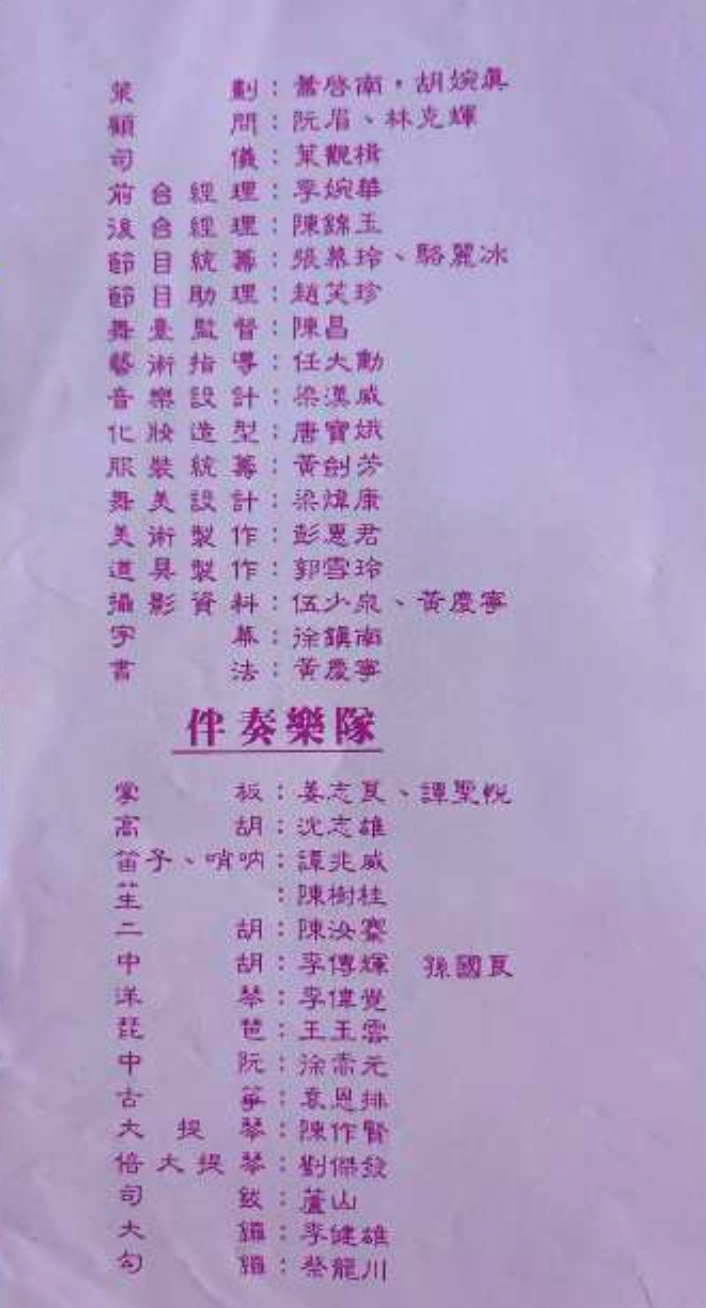 策劃：蕭啓南，胡婉眞
顧問：阮眉、林克輝
司儀：葉觀楫
前台經理：李婉華
後台經理：陳錦玉
節目統籌：張慕玲、駱麗冰
節目助理：趙笑珍
舞臺監督：陳昌
藝術指導：任大勳
音樂設計：梁漢威
化妝造型：唐寶娥
服裝統籌：黃劍芳
舞美設計：梁煒康
美術製作：彭惠君
道具製作：郭雪玲
攝影資料：伍少泉、黃慶寧
字幕：徐鎮南
書法：黃慶寧
伴奏樂隊
掌板：姜志良、譚聖悅
高胡：沈志雄
笛子、哨吶：譚兆威
笙：陳樹桂
二胡：陳汝騫
中胡：李傳輝 孫國良
洋琴：李偉覺
琵琶：王玉雲
中阮：徐赤元
古箏：袁恩排
大提琴：陳作賢
倍大提琴：劉傑發
司鈸：蘆山
大鑼：李健雄
勾鑼：蔡龍川